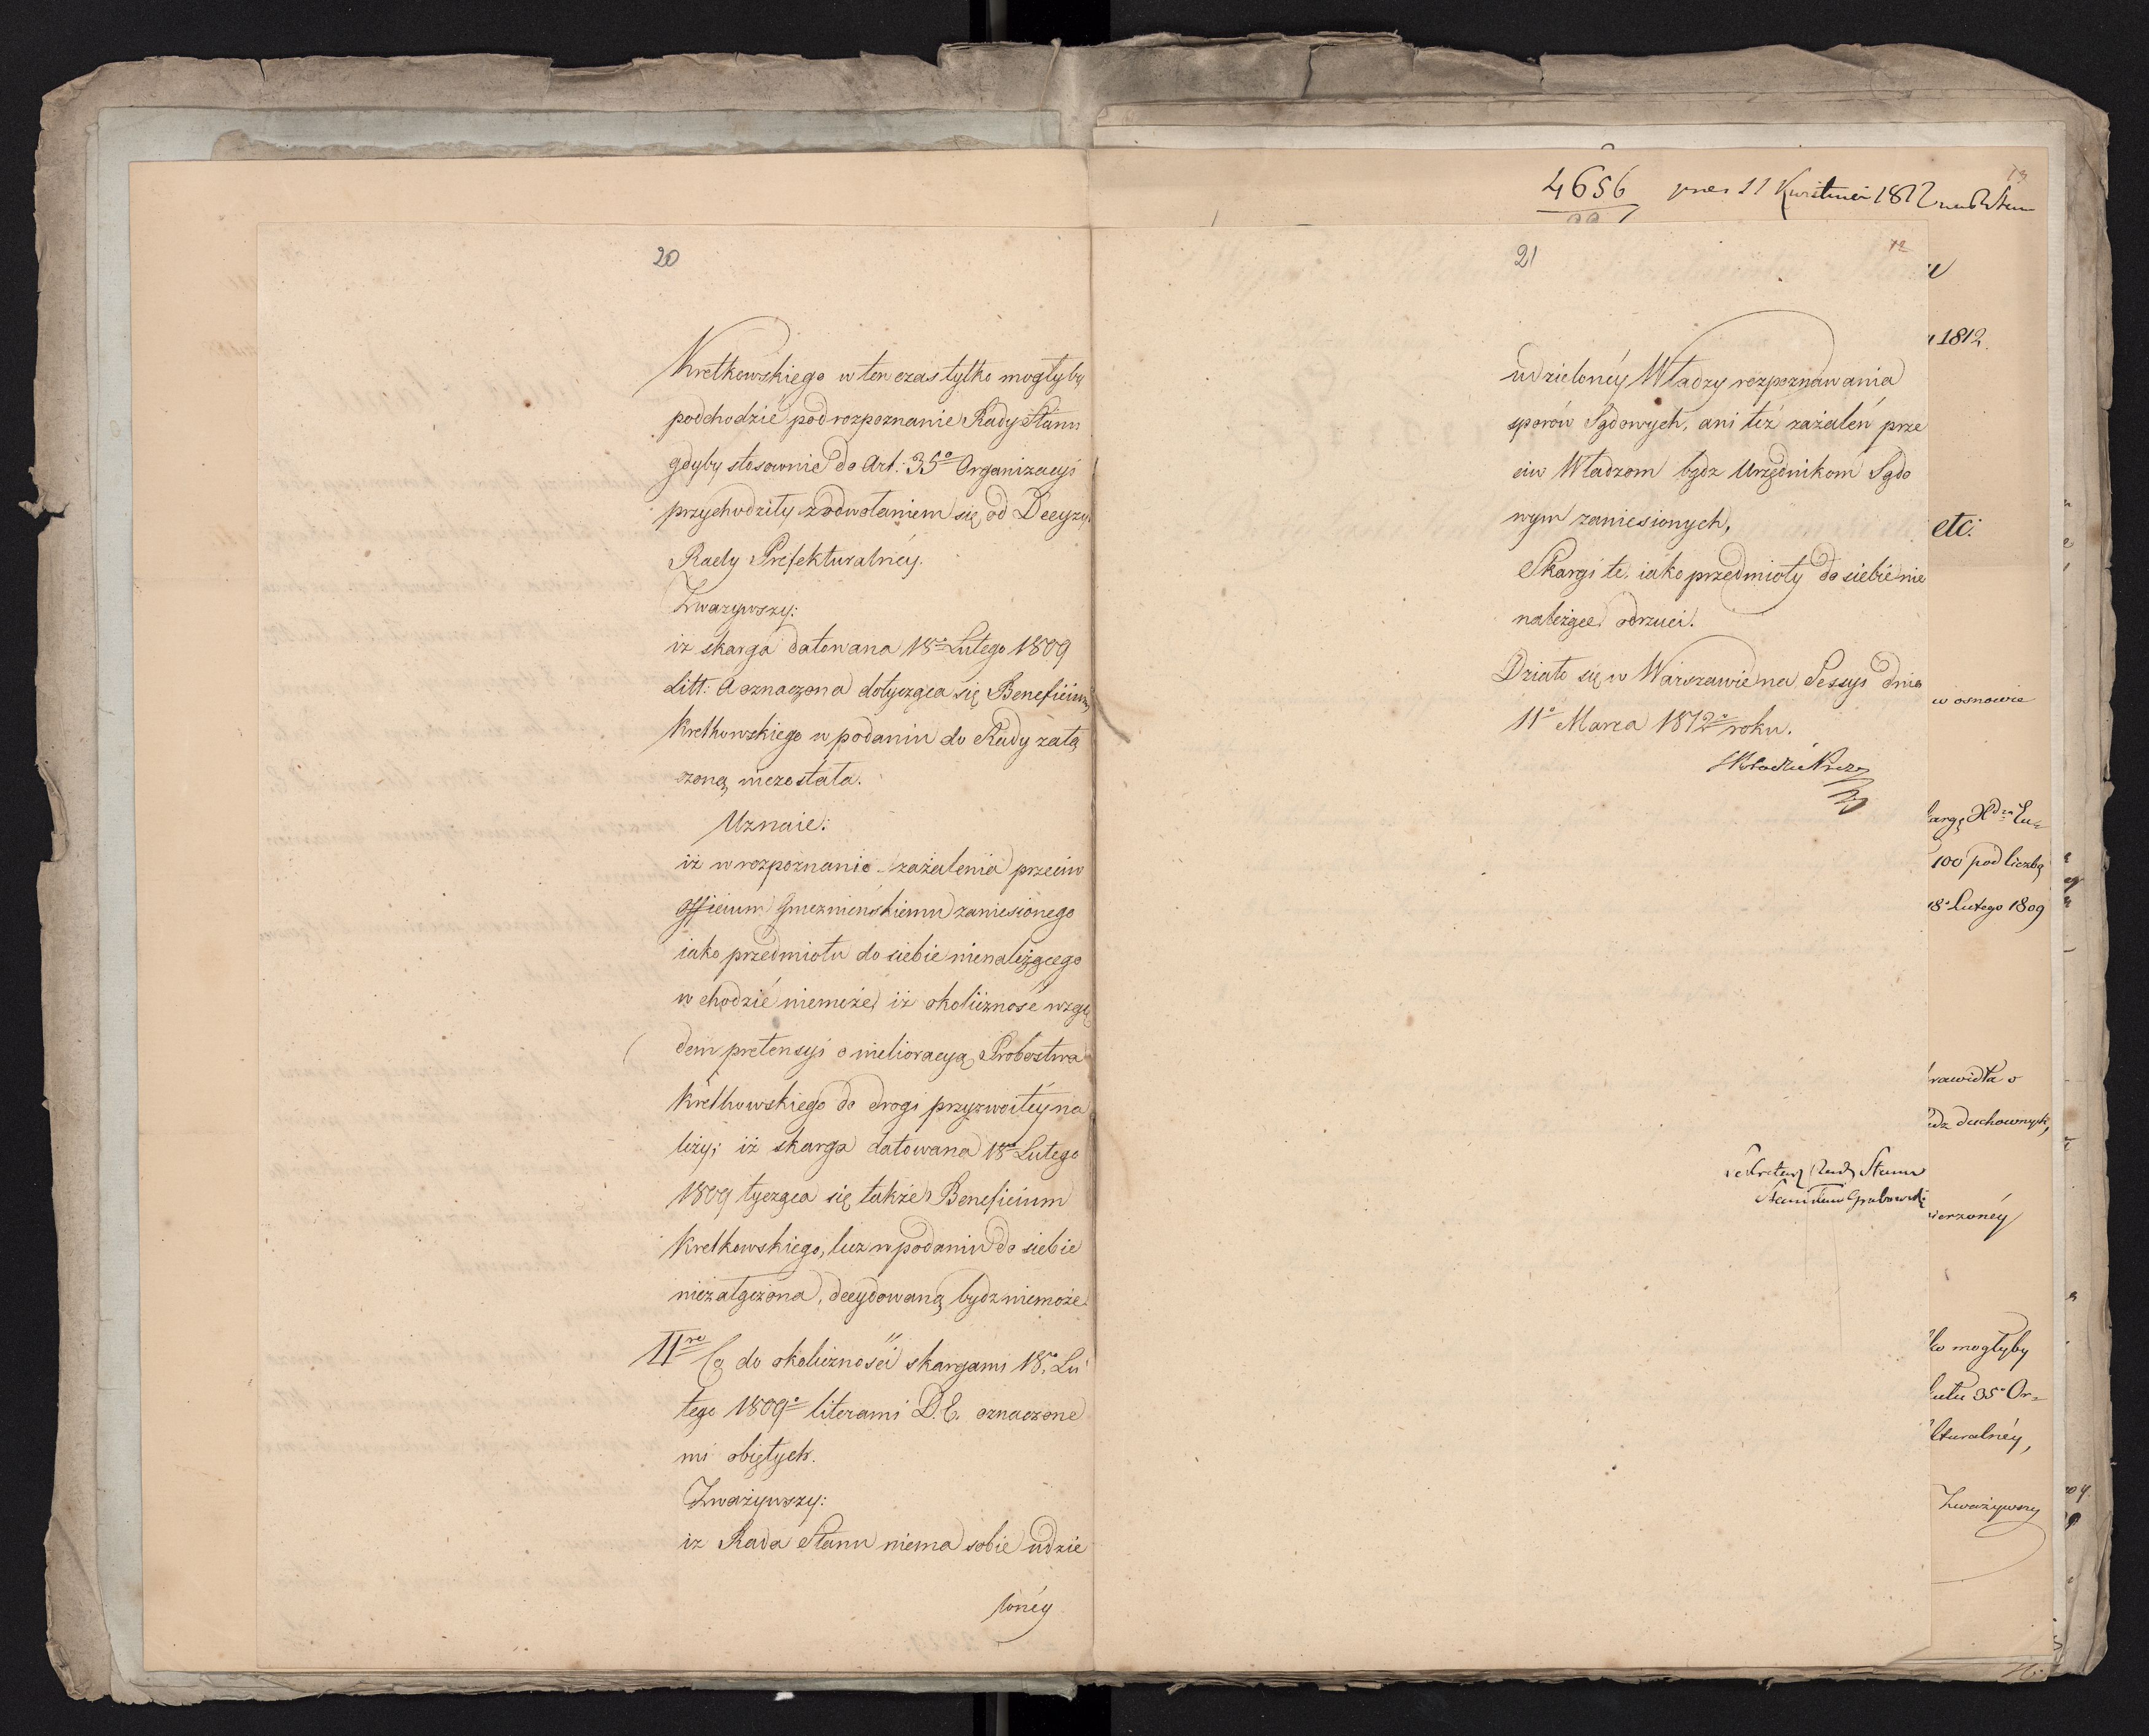 20
Kretkowskiego w ten czas tylko mogłyby
podchodzić pod rozpoznanie Rady Stanu
gdyby stosownie do Art: 35º Organizacyi
przychodziły z odwołaniem się od Decyzyi
Rady Prefekturalnéy.
Zwazywszy:
iz skarga datowana 18º Lutego 1809
Litt: A oznaczona dotycząca się Beneficium
Kretkowskiego w podaniu do Rady załą
czoną niezostała.
Uznaie:
iż w rozpoznanie zażalenia przeciw
Officium Gnieznieńskiemu zaniesionego
iako przedmiotu do siebie nienależącego
wchodzić niemoże, iż okoliczność wzglę
dem pretensyi o melioracyą Probostwa
Kretkowskiego do drogi przyzwoitéy na
leży; iż skarga datowana 18º Lutego
1809 tycząca się także Beneficium
Kretkowskiego, lecz w podaniu do siebie
niezałączona, decydowaną bydz niemoże.
IIre Co do okoliczności skargami 18º Lu
tego 1809º literami D. E. oznaczone
mi obiętych.
Zważywszy:
iz Rada Stanu niema sobie udzie
lonéy
4656 11 Kwietnia 1812
13
21
12
udzielonéy Władzy rozpoznawania
sporów Sądowych, ani téż zażaleń prze
ciw Władzom bądz Urzędnikom Sądo
wym zaniesionych,
Skargi te, iako przedmioty do siebie nie
należące odrzuci.
Działo się w Warszawie na Sessyi dnia
11º Marca 1812º roku.
Sekretarz Rady Stanu
Stanisław Grabowski
1812.
etc:
w osnowie
100 pod liczbą
18º Lutego 1809
duchownych,
mogłyby
35º Or=
Zważywszy